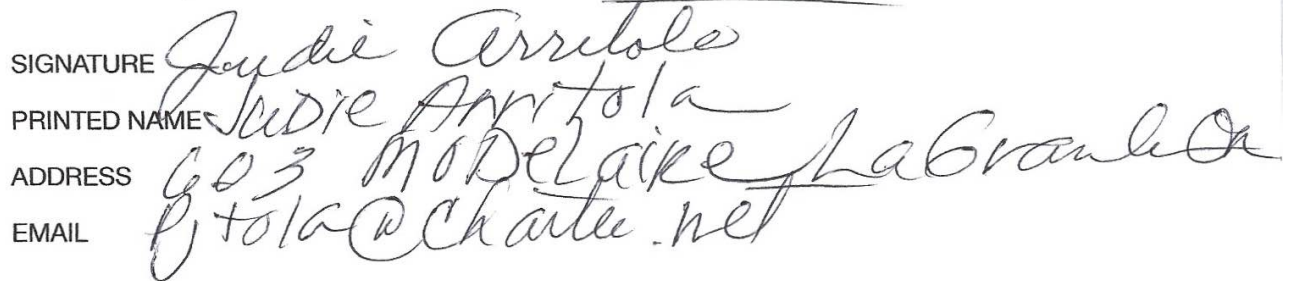 SIGNATURE Judie Arritola
PRINTED NAME Judie Arritola
ADDRESS 603 Modelaire LaGrande Or
EMAIL Pjtola@charter.net